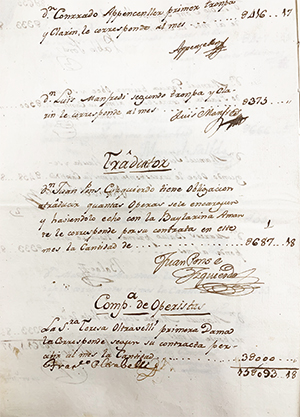 Dn Conrrado Appencenller primer trompa
y Clarin, le corresponde al mes 8416 .. 17
Dn Luis Manfredi segundo trompa y Cla
rin le corresponde al mes 8373
Luis Manfredi
Trâductor
Dn Juan Ans. Ezquierdo tiene Obligacion
trâducir quantas Operas se le encarguen
y haviendolo echo con la Baylarina Aman
te le corresponde por su contrata en este
mes la Cantidad de 8687 .. 18
Juan
Izquierdo
Comp.a de Operistas
La S.ra Teresa Oltravelli primera dama
la Corresponde segun su contracta per
civir al mes la Cantidad 38000
158093 .. 18